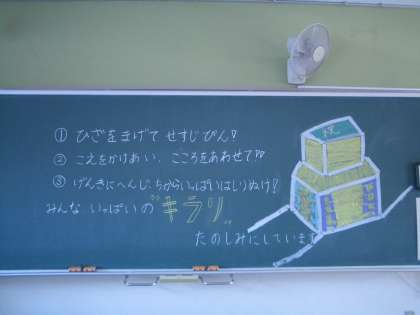 ① ひざをまげて せすじ ぴん!
② こえをかけあい、こころをあわせて!!
③ げんきにへんじ、ちからいっぱいはしりぬけ!
みんな いっぱいの "キラリ"
たのしみにしています